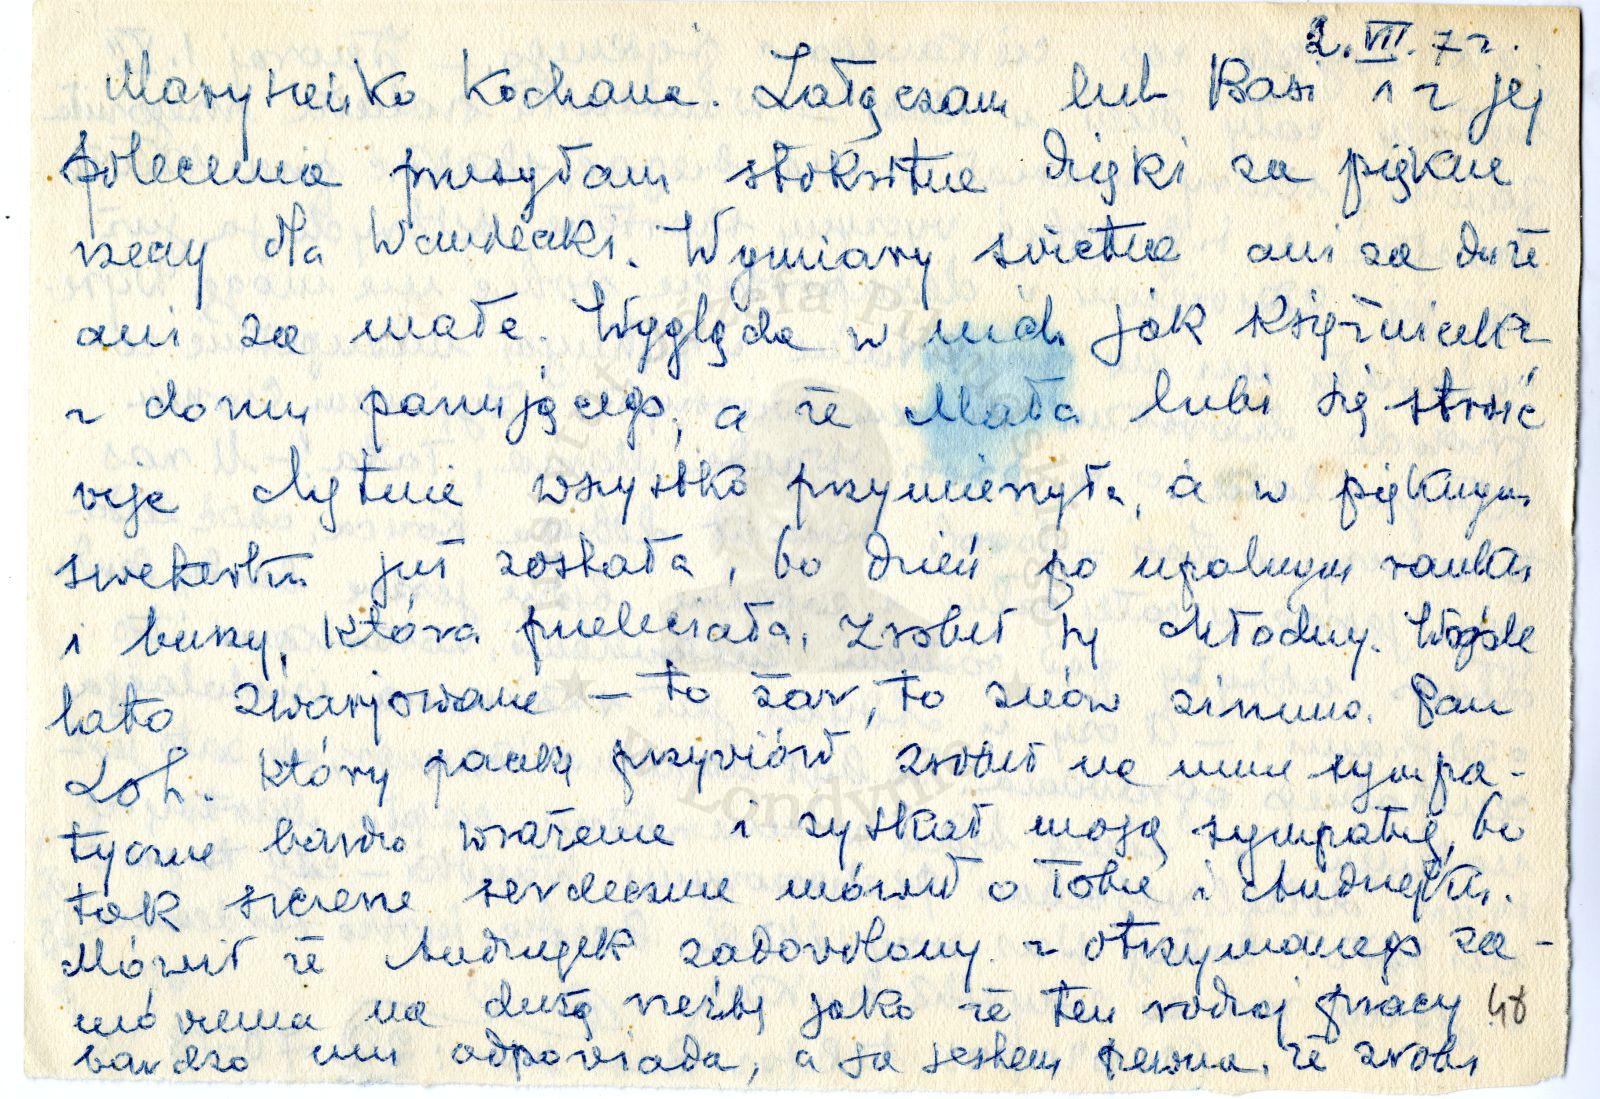 2. VII. 72.
Marysieńko Kochana. Załączam lub Basi i z jej
polecenia przesyłam stokrotne dzięki za piękne
rzeczy dla Wandeczki. Wymiary świetne ani za duże
ani za małe. Wygląda w nich jak Księżniczka
z domu panującego, a że Mała lubi się stroić
więc chętnie wszystko przymierzyła, a w pięknym
sweterku już została, bo dzień po upalnym ranku
i burzy, która przeleciała, zrobił się chłodny. Wogóle
lato zwarjowane – to żar, to znów zimno. Pan
Loh. który paczkę przywiózł zrobił na mnie sympa-
tyczne bardzo wrażenie i zyskał moją sympatię, bo
tak szczerze serdecznie mówił o Tobie i Andrzejku.
Mówił że Andrzejek zadowolony z otrzymanego za-
mówienia na dużą rzeźbę jako że ten rodzaj pracy
48
bardzo mu odpowiada, a ja jestem pewna, że zrobi
Londynie